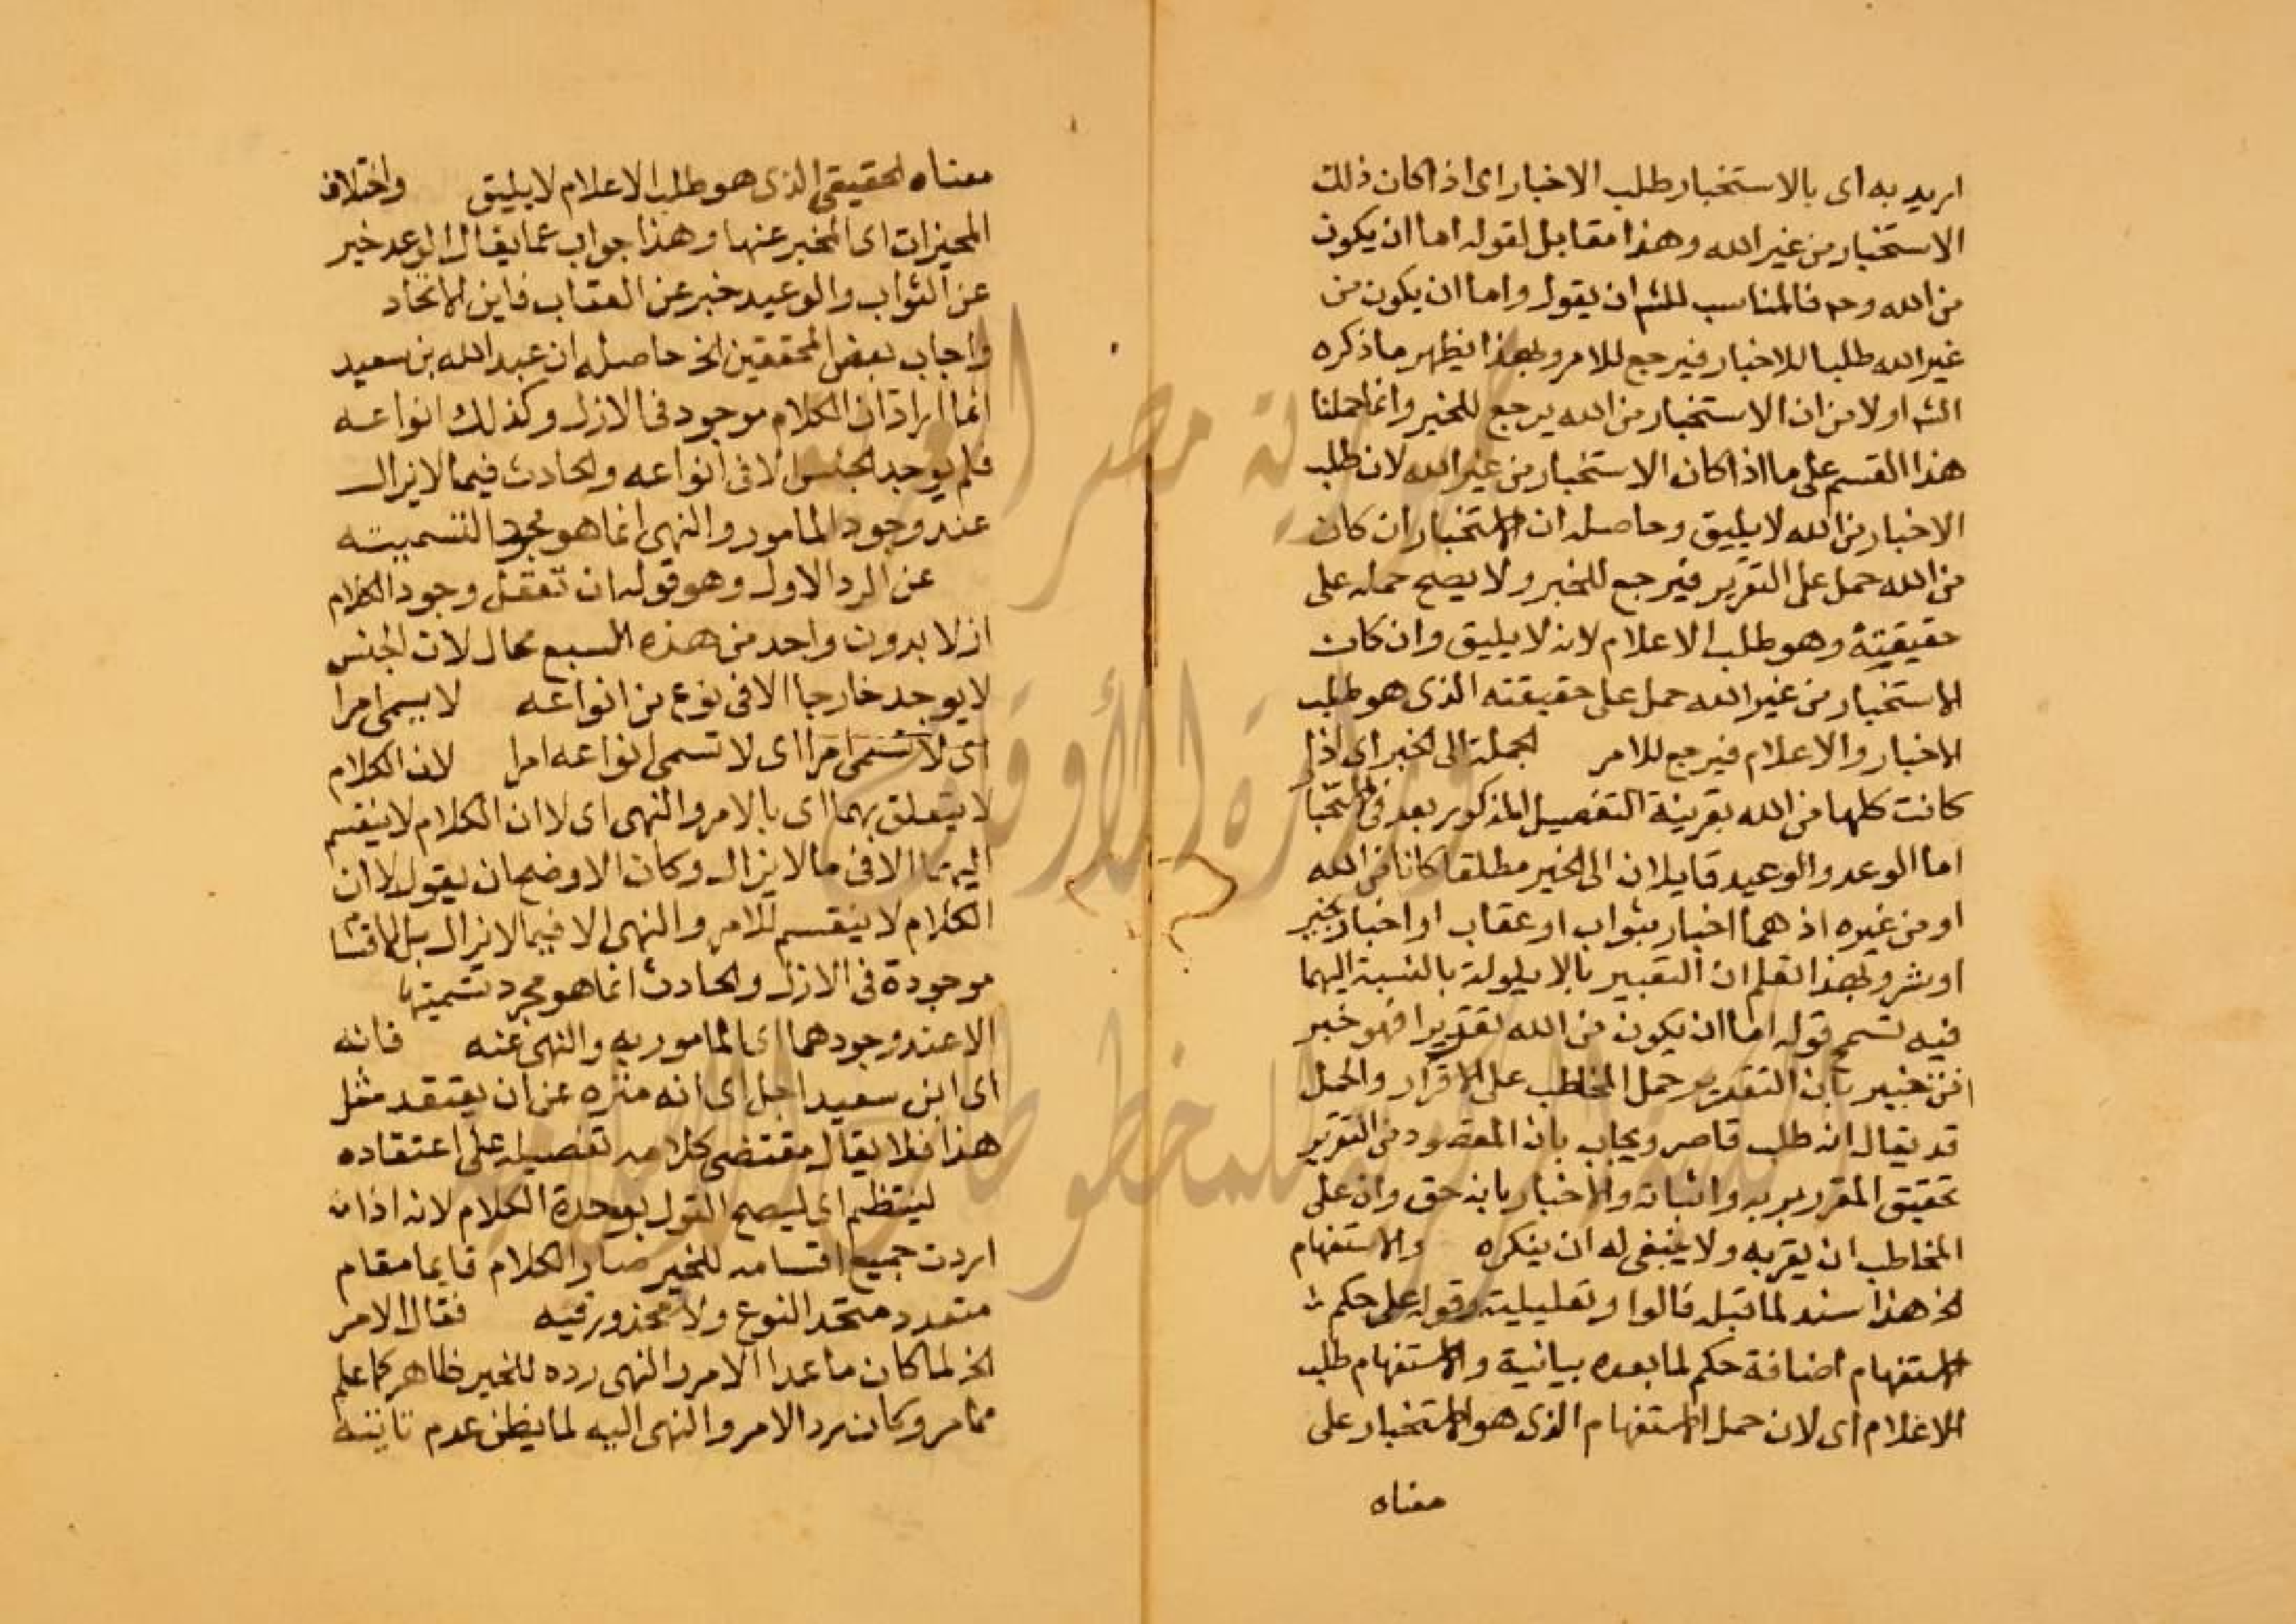 اريد به اى بالاستخبار طلب الاخبار اى اذا كان ذلك
الاستخبار من غير الله وهذا مقابل لقوله اما ان يكون
من الله وح فالمناسب للش ان يقول واما ان يكون من
غير الله طلبا للاخبار فيرجع للامر وبهذا يظهر ما ذكره
الش اولا من ان الاستخبار من الله يرجع للخبر وانما حملنا
هذا القسم على ما اذا كان الاستخبار من غير الله لان طلب
الاخبار من الله لا يليق وحاصله ان الاستخبار ان كان
من الله حمل على التقرير فيرجع للخبر ولا يصح حمله على
حقيقته وهو طلب الاعلام لانه لا يليق وان كان
الاستخبار من غير الله حمل على حقيقته الذى هو طلب
الاخبار والاعلام فيرجع للامر الجملة الى الخبر اى اذا
كانت كلها من الله بقرينة التفصيل المذكور بعد فى الاستخبا
اما الوعد والوعيد قايلان الى الخبر مطلقا كانا من الله
او من غيره اذ هما اخبار بثواب او عقاب او اخبار بخير
او شر وبهذا تعلم ان التعبير بالايلولة بالنسبة اليهما
فيه تسمح قوله اما ان يكون من الله تقريرا فهو خبر
خبير بان التقرير حمل المخاطب على الاقرار والحمل
قد يقال انه طلب قاصر ويجاب بان المقصود من التقرير
تحقيق المقرر به واثباته والاخبار بانه حق وان على
المخاطب ان يقر به ولا ينبغى له ان ينكره والاستفهام
الخ هذا سند لما قبله قالوا وتعليلية وقوله على حكم
الاستفهام اضافة حكم لما بعده بيانية والاستفهام طلب
الاعلام اى لان حمل الاستفهام الذى هو الاستخبار على
معناه
معناه الحقيقى الذى هو طلب الاعلام لا يليق واختلاف
المخبرات اى المخبر عنها وهذا جواب عما يقال الوعد خبر
عن الثواب والوعيد خبر عن العقاب فاين الاتحاد
واجاب بعض المحققين الخ حاصله ان عبد الله بن سعيد
انما اراد ان الكلام موجود فى الازل وكذلك انواعه
فلم يوجد الجنس الا فى انواعه والحادث فيما لا يزال
عند وجود المامور والنهى انما هو مجرد التسمية
عن الرد الاول وهو قوله ان تعقل وجود الكلام
ازلا بدون واحد من هذه السبع محال لان الجنس
لا يوجد خارجا الا فى نوع من انواعه لا يسمى امرا
اى لا تسمى امرا اى لا تسمى انواعه امرا لان الكلام
لا يتعلق بهما اى بالامر والنهى اى لا ان الكلام لا ينقسم
اليهما الا فى ما لا يزال وكان الاوضح ان يقول لا ان
الكلام لا ينقسم للامر والنهى الا فيما لا يزال بل الاقسا
موجودة فى الازل والحادث انما هو مجرد تسميتها
الا عند وجودهما اى المامور به والنهى عنه فانه
اى ابن سعيد اجل اى انه منزه عن ان يعتقد مثل
هذا فلا يقال مقتضى كلامه تفصيله على اعتقاده
لينتظم اى ليصح القول بوحدة الكلام لانه اذا
اردت جميع اقسامه للخبر صار الكلام قايما مقام
متعدد متحد النوع ولا محذور فيه فقال الامر
الخ لما كان ما عدا الامر والنهى رده للخبر ظاهر كما علم
مما مر وكان رد الامر والنهى اليه لما يظن عدم